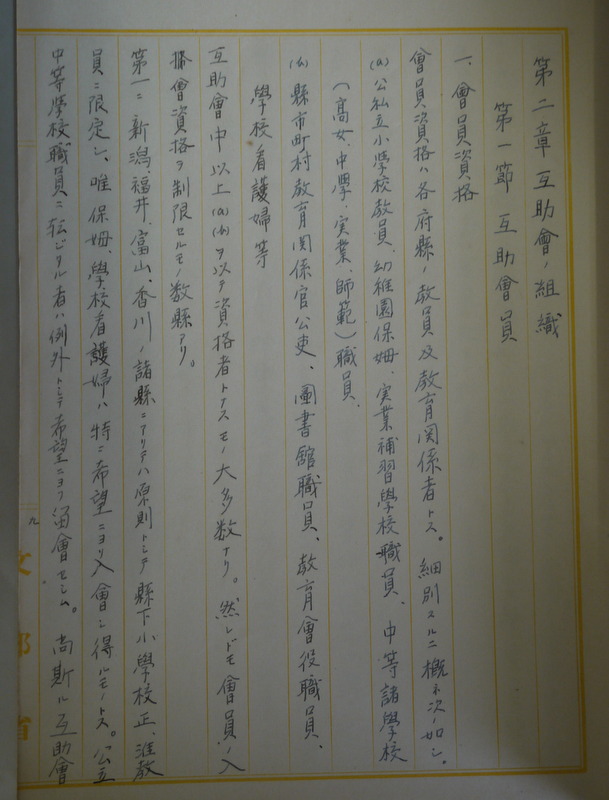 第二章 互助會ノ組織
第一節 互助會員
一、會員資格
會員資格ハ各府縣ノ教員及教育関係者トス。細別スルニ概ネ次ノ如シ。
(a) 公私立小學校教員、幼稚園保姆、実業補習學校職員、中等諸學校
(高女、中學、実業、師範)職員、
(b) 縣市町村教育関係官公吏、圖書館職員、教育會役職員、
學校看護婦等
互助會中以上(a)(b)ヲ以テ資格者トナスモノ大多数ナリ。然レドモ會員ノ入
會資格ヲ制限セルモノ数縣アリ。
第一ニ新潟、福井、富山、香川ノ諸縣ニアリテハ原則トシテ縣下小學校正、准教
員ニ限定シ、唯保姆、學校看護婦ハ特ニ希望ニヨリ入會シ得ルモノトス。公立
中等學校職員ニ転ジタル者ハ例外トシテ希望ニヨリ留會セシム。尚斯ル互助會
九
文部省